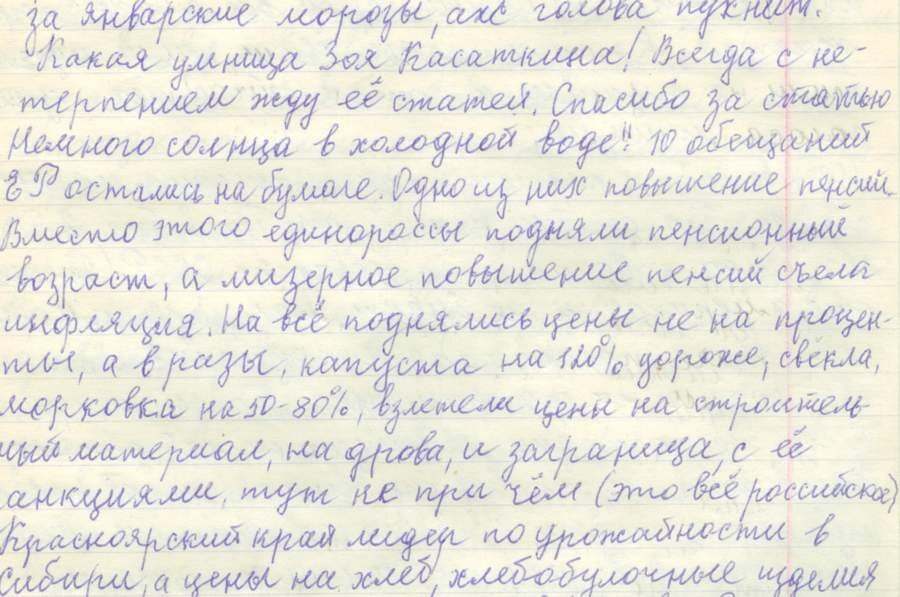 за январские морозы, аж голова пухнит.
Какая умница Зоя Касаткина! Всегда с не-
терпением жду её статей. Спасибо за статью
Немного солнца в холодной воде". 10 обещаний
ЕР остались на бумаге. Одно из них повышение пенсий.
Вместо этого единороссы подняли пенсионный
возраст, а мизерное повышение пенсий съела
инфляция. На всё поднялись цены не на процен-
ты, а в разы, капуста на 120% дороже, свёкла,
морковка на 50-80%, взлетели цены на строитель-
ный материал, на дрова, и заграница, с её
анкциями, тут не при чём (это всё российское)
Красноярский край лидер по урожайности в
Сибири, а цены на хлеб, хлебобулочные изделия